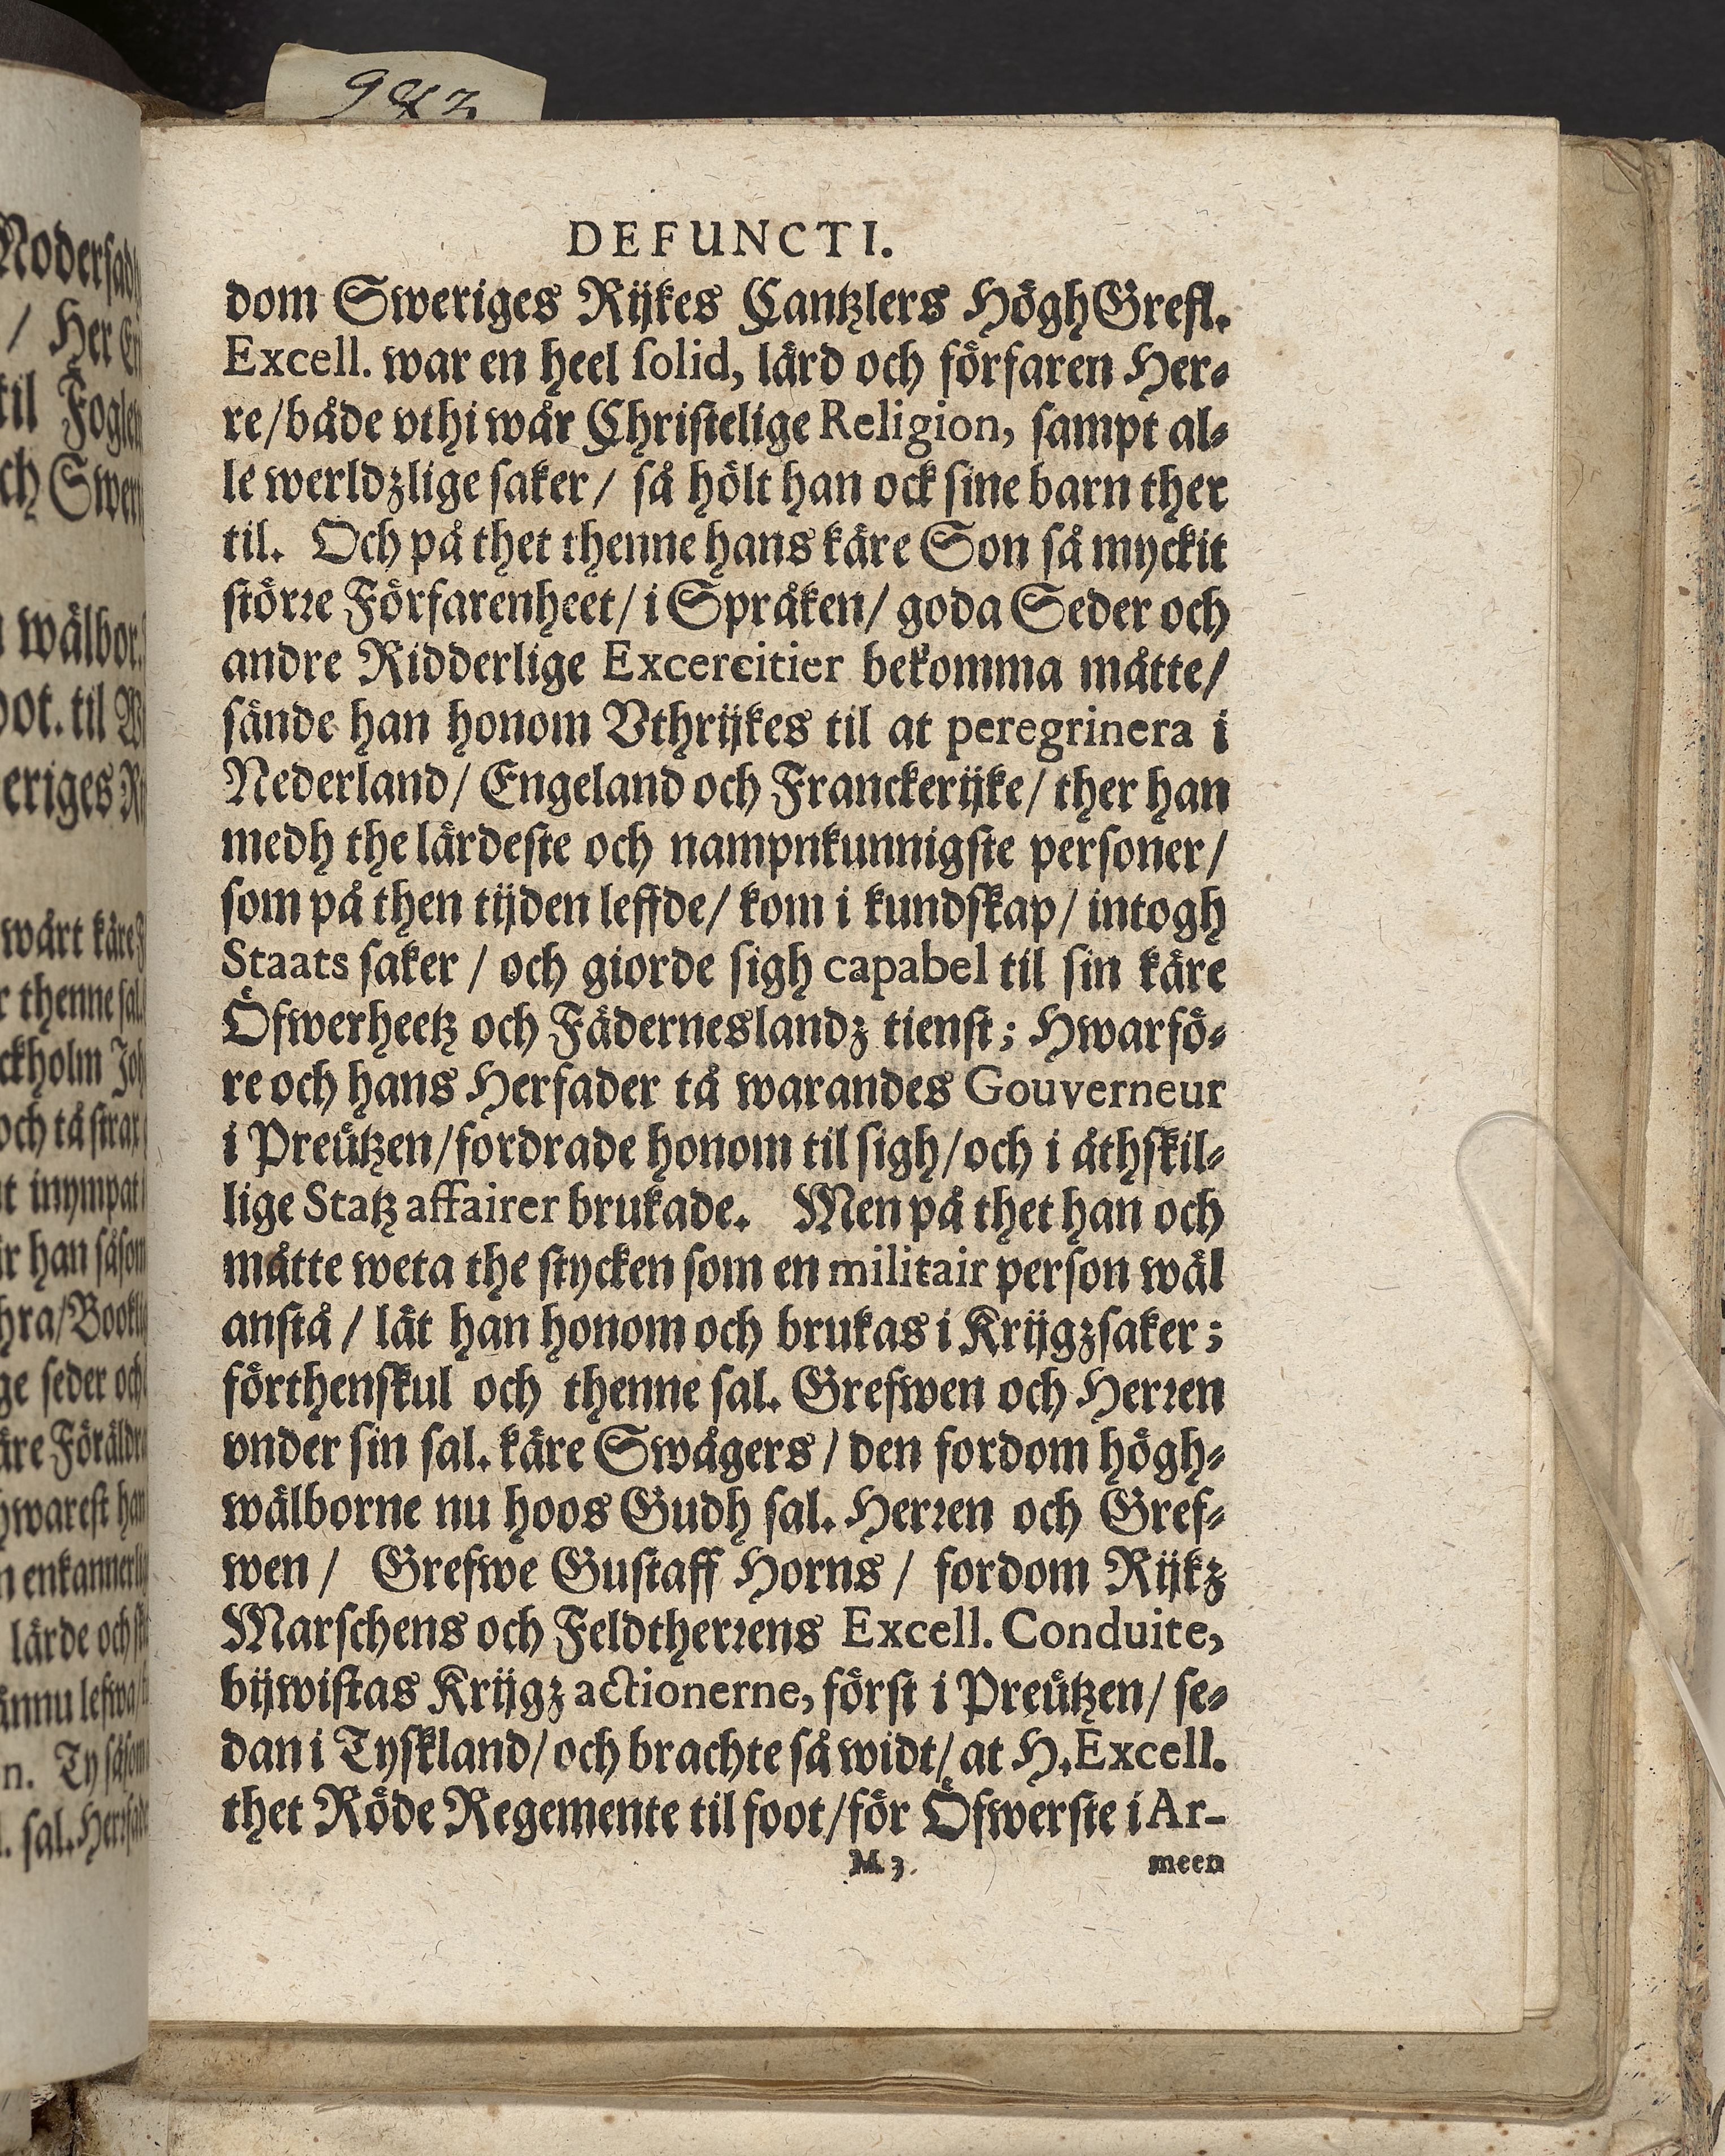 DEFUNCTI.
dom Sweriges Rijkes Cantzlers HöghGrefl.
Excell. war en heel solid, lärd och förfaren Her-
re/både vthi wår Christelige Religion, sampt al-
le werldzlige saker/ så hölt han ock sine barn ther
til. Och på thet thenne hans käre Son så myckit
större Förfarenheet/ i Språken/ goda Seder och
andre Ridderlige Excercitier bekomma måtte/
sände han honom Vthrijkes til at peregrinera i
Nederland/ Engeland och Franckerijke/ ther han
medh the lärdeste och nampnkunnigste personer/
som på then tijden leffde/ kom i kundskap/ intogh
Staats saker / och giorde sigh capabel til sin käre
Öfwerheetz och Fäderneslandz tienst; Hwarfö-
re och hans Herfader tå warandes Gouverneur
i Preützen/fordrade honom til sigh/och i åthskil-
lige Statz affairer brukade. Men på thet han och
måtte weta the stycken som en militair person wäl
anstå / lät han honom och brukas i Krijgzsaker;
förthenskul och thenne sal. Grefwen och Herren
vnder sin sal. käre Swågers / den fordom högh-
wälborne nu hoos Gudh sal. Herren och Gref-
wen / Grefwe Gustaff Horns / fordom Rijkz
Marschens och Feldtherrens Excell. Conduite,
bijwistas Krijgz actionerne, först i Preützen/ se-
dan i Tyskland/ och brachte så widt/ at H. Excell.
thet Röde Regemente til foot/för Öfwerste i Ar-
M 3. meen